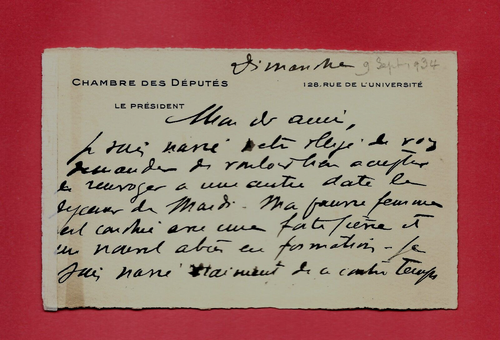 Dimanche 9 Sept. 1934.
CHAMBRE DES DÉPUTÉS
128, RUE DE L'UNIVERSITÉ
LE PRÉSIDENT
Mon cher ami,
Je suis navré d'être obligé de vous
demander de vouloir bien accepter
de renvoyer à une autre date le
déjeuner de Mardi - Ma pauvre femme
est couchée avec une forte fièvre et
un nouvel abcès en formation - Je
suis navré vraiment de ce contre temps